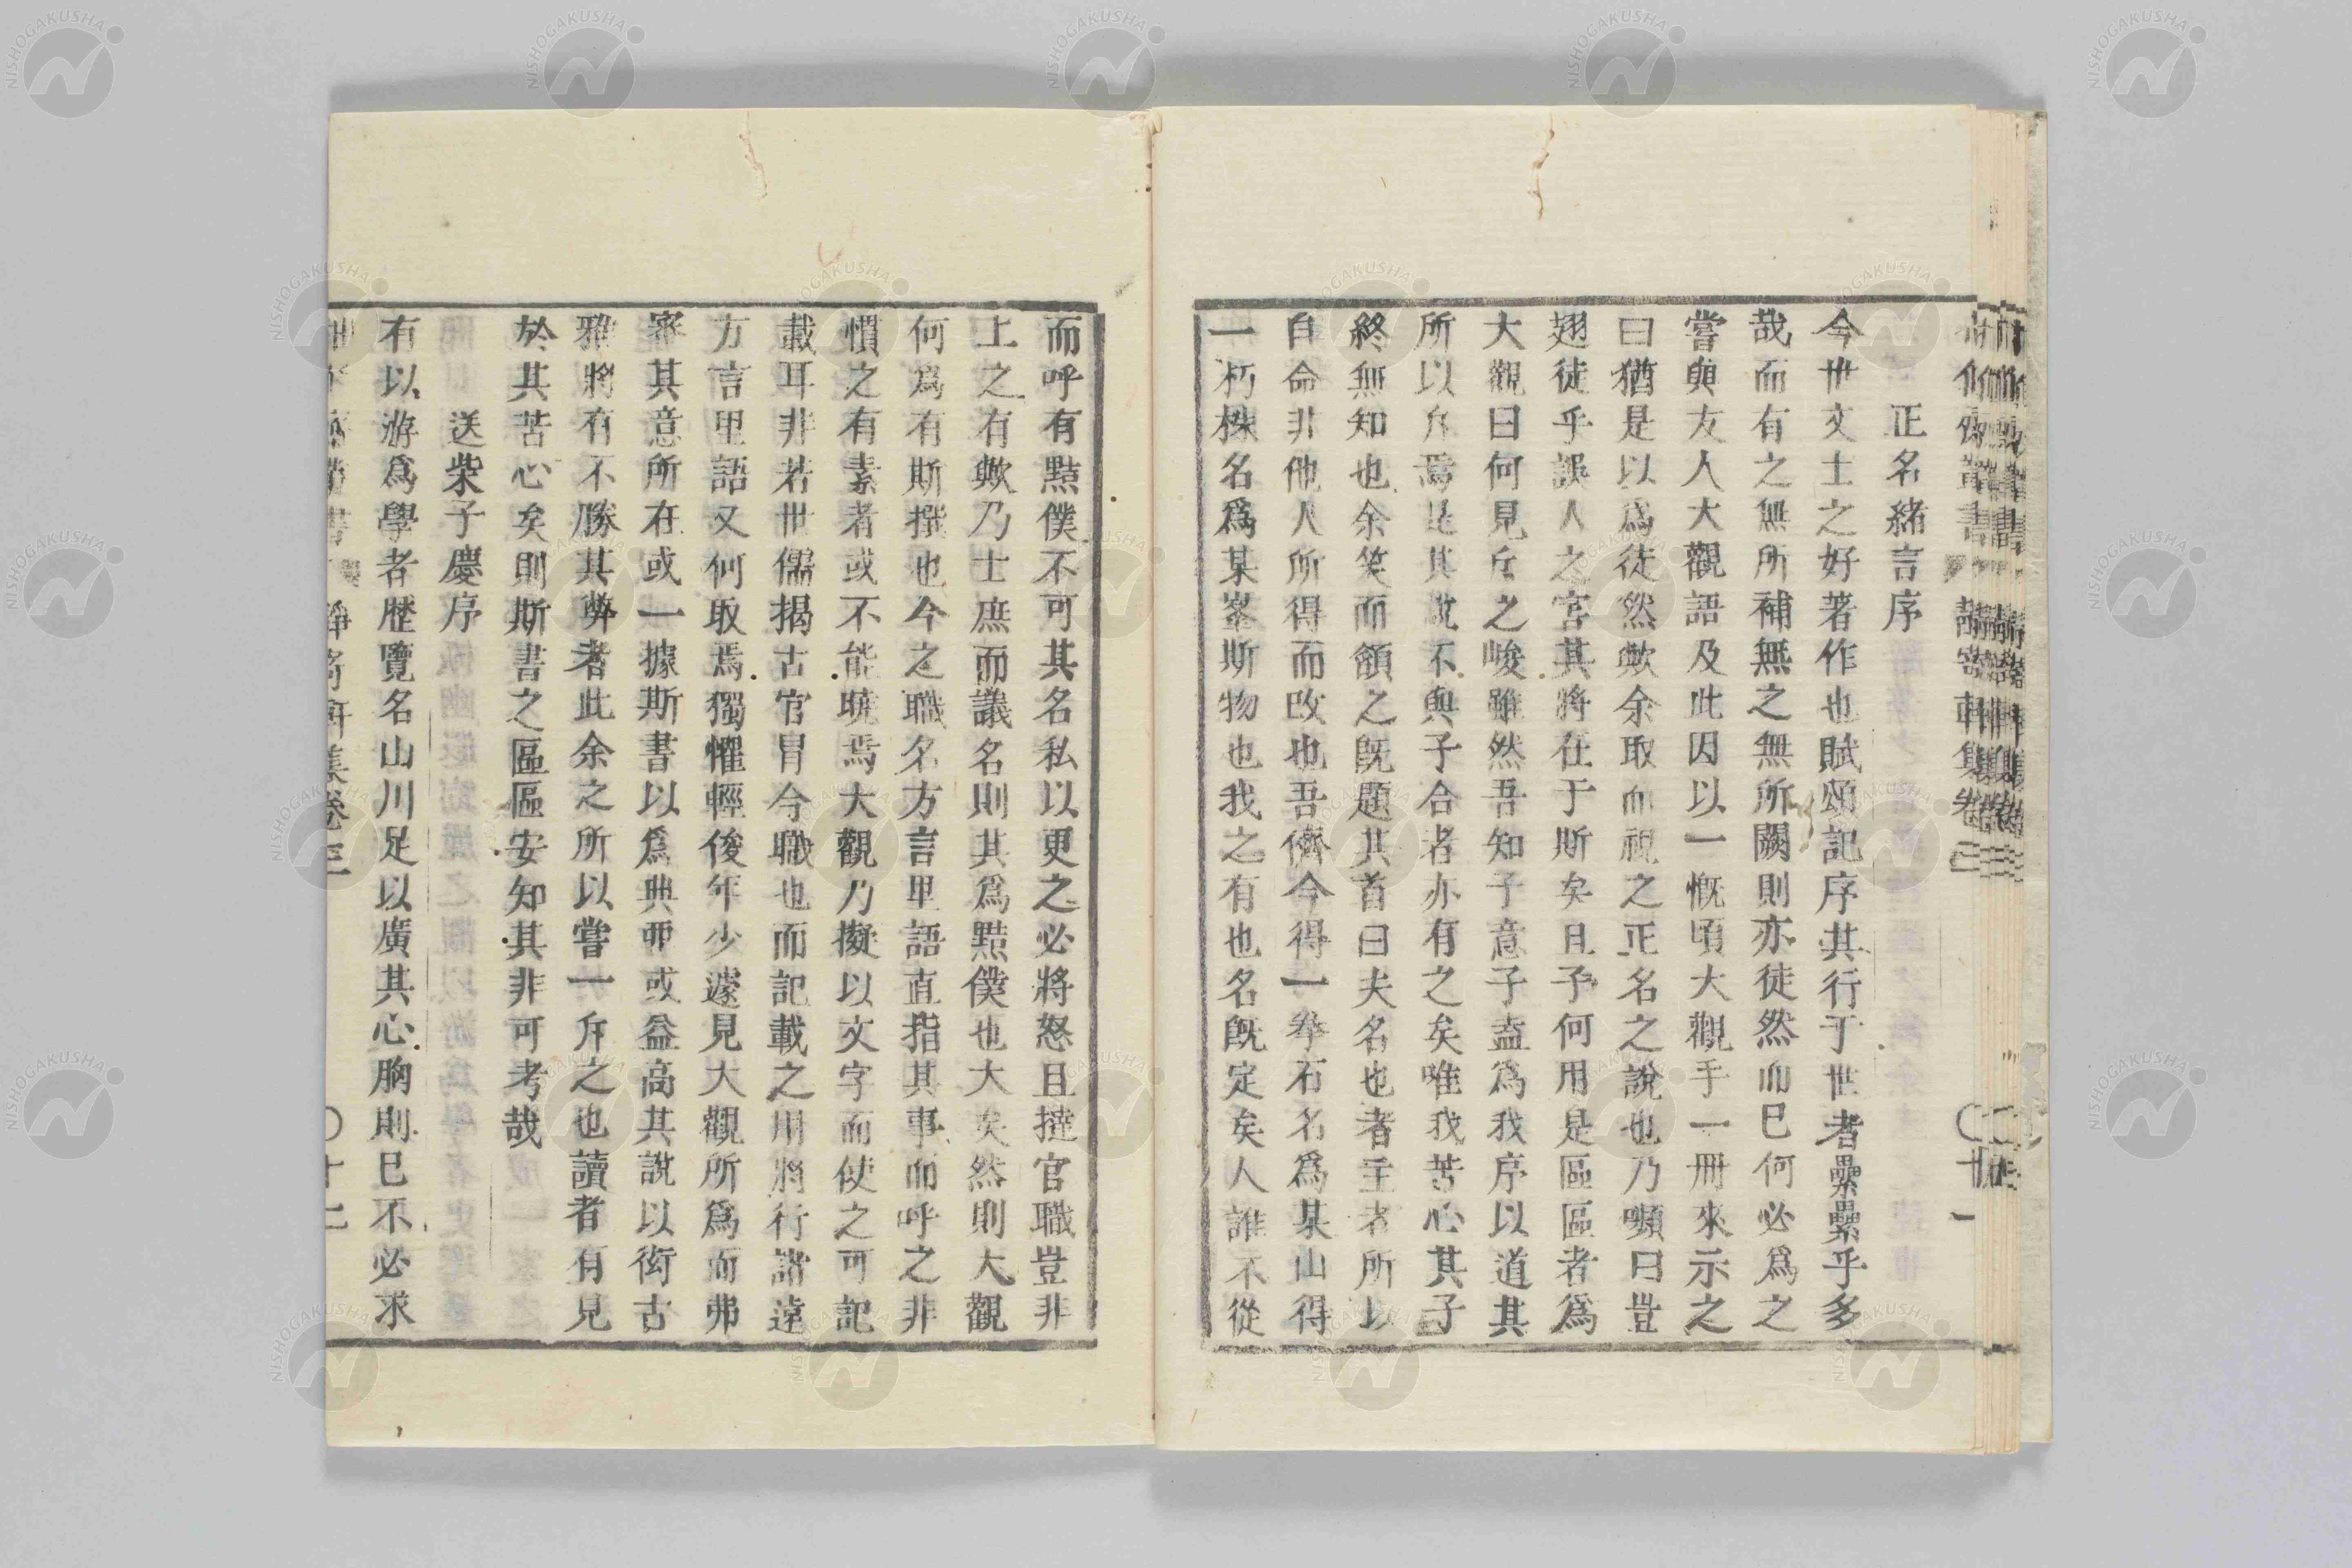 正名緒言序
今世文士之好著作也賦頌記序其行于世者纍纍乎多
哉而有之無所補無之無所闕則亦徒然而已何必爲之
嘗與友人大觀語及此因以一慨頃大觀手一冊來示之
曰猶是以爲徒然歟余取而視之正名之說也乃嚬曰豈
翅徒乎誤人之害其將在于斯矣且予何用是區區者爲
大觀曰何見斥之峻雖然吾知子意子盍爲我序以道其
所以斥焉是其說不與子合者亦有之矣唯我苦心其子
終無知也余笑而頷之既題其首曰夫名也者主者所以
自命非他人所得而改也吾儕今得一拳石名爲某山得
一朽株名爲某峯斯物也我之有也名既定矣人誰不從
而呼有㸃僕不可其名私以更之必將怒且撻官職豈非
上之有歟乃士庶而議名則其爲㸃僕也大矣然則大觀
何爲有斯撰也今之職名方言里語直指其事而呼之非
慣之有素者或不能曉焉大觀乃擬以文字而使之可記
載耳非若世儒揭古官冒今職也而記載之用將行諸遠
方言里語又何取焉獨懼輕俊年少遽見大觀所爲而弗
審其意所在或一據斯書以爲典冊或益高其說以衒古
雅將有不勝其弊者此余之所以嘗一斥之也讀者有見
於其苦心矣則斯書之區區安知其非可考哉
送柴子慶序
有以游爲學者歴覽名山川足以廣其心胸則已不必求
集卷三
〇十二